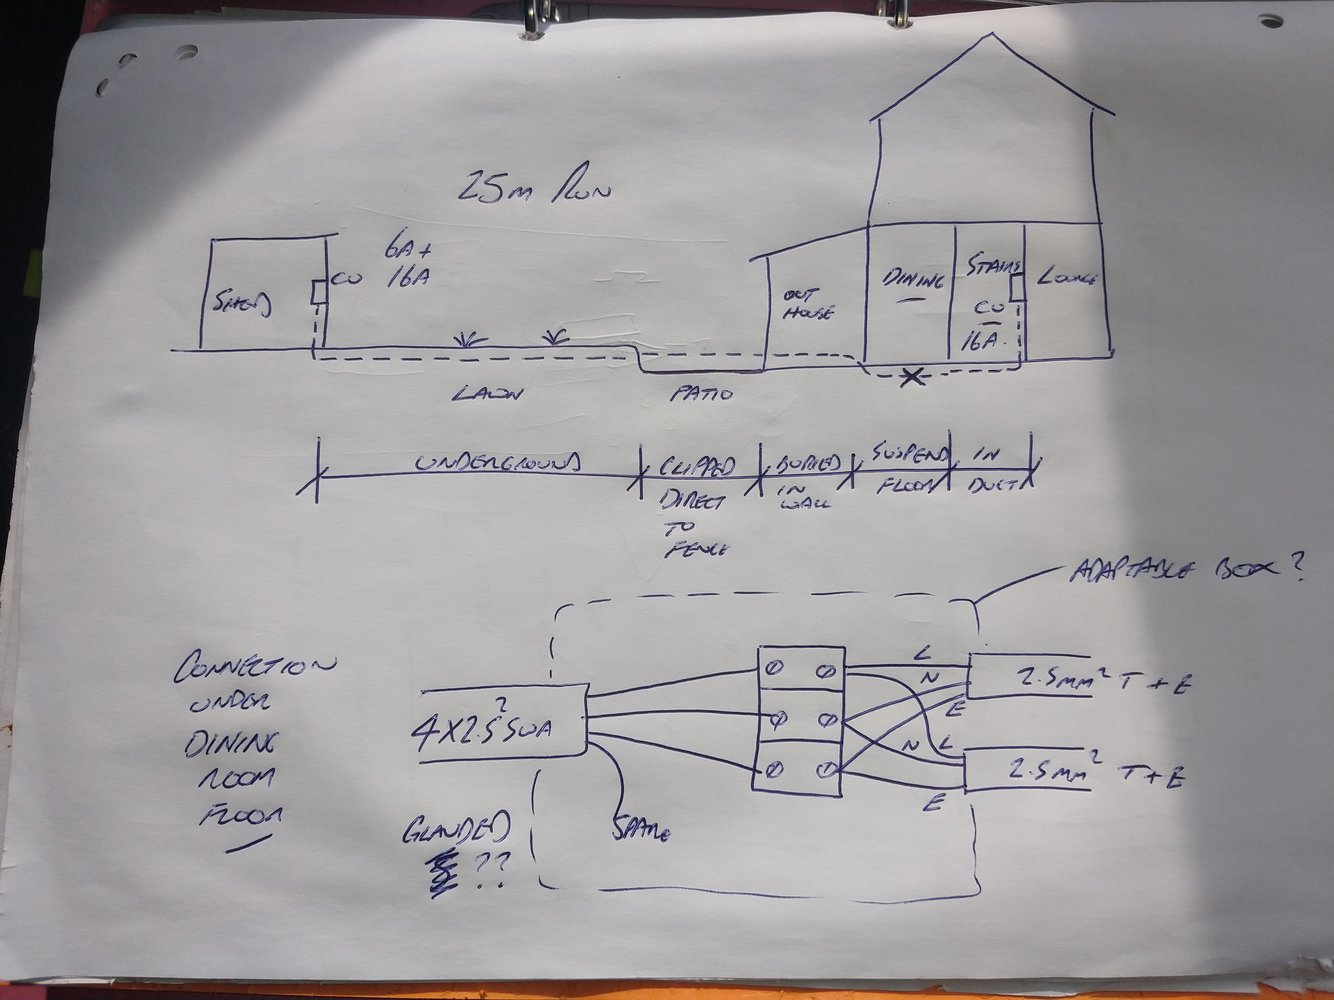 25m RUN
6A+
16A
SHED
CU
OUT
HOUSE
DINING
STAIRS
CU
16A.
LOUNGE
LAWN
PATIO
UNDERGROUND
CLIPPED
DIRECT
TO
FENCE
BURIED
IN
WALL
SUSPEND
FLOOR
IN
DUCT
ADAPTABLE BOX?
CONNECTION
UNDER
DINING
ROOM
FLOOR
4X2.5² SWA
GLANDED
??
SPARE
L
N
E
2.5mm² T+E
N L
E
2.5mm² T+E